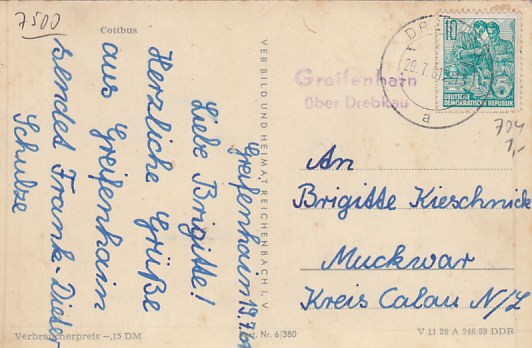 7500
Cottbus
Greifenhain 19.7.61
Liebe Brigitte!
Herzliche Grüße
aus Greifenhain
sendet Frank-Dieter
Schulze
VEB BILD UND HEIMAT REICHENBACH I. V.
Greifenhain
über Drebkau
20.7.61
a
10
DEUTSCHE
DEMOKRATISCHE REPUBLIK
704
1,-
An
Brigitte Kieschnick
Muckwar
Kreis Calau N/L
Verbraucherpreis –,15 DM
Nr. 6/380
V 11 28 A 246/59 DDR